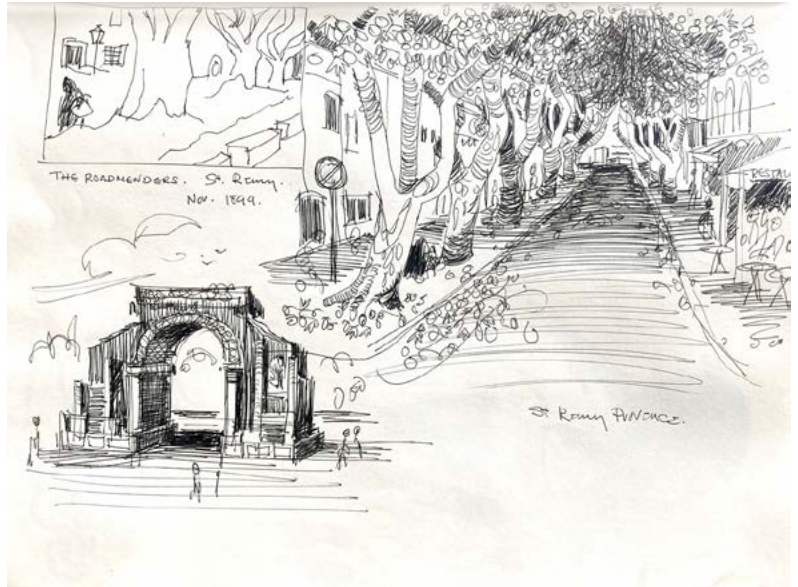 THE ROADMENDERS. St. Remy.
Nov. 1899.
RESTAU
St Remy PROVENCE.